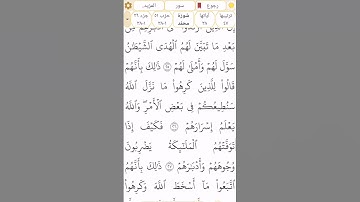 رجوع سور المزيد..
ترتيبها ٤٧ آياتها ٣٨ سُورَة مُحَمَّد حزب ٥١ جزء ٢٦
بَعْدِ مَا تَبَيَّنَ لَهُمُ ٱلْهُدَى ٱلشَّيْطَٰنُ
سَوَّلَ لَهُمْ وَأَمْلَىٰ لَهُمْ ۝٢٥ ذَٰلِكَ بِأَنَّهُمْ
قَالُوا۟ لِلَّذِينَ كَرِهُوا۟ مَا نَزَّلَ ٱللَّهُ
سَنُطِيعُكُمْ فِى بَعْضِ ٱلْأَمْرِ ۖ وَٱللَّهُ
يَعْلَمُ إِسْرَارَهُمْ ۝٢٦ فَكَيْفَ إِذَا
تَوَفَّتْهُمُ ٱلْمَلَٰٓئِكَةُ يَضْرِبُونَ
وُجُوهَهُمْ وَأَدْبَٰرَهُمْ ۝٢٧ ذَٰلِكَ بِأَنَّهُمُ
ٱتَّبَعُوا۟ مَآ أَسْخَطَ ٱللَّهَ وَكَرِهُوا۟